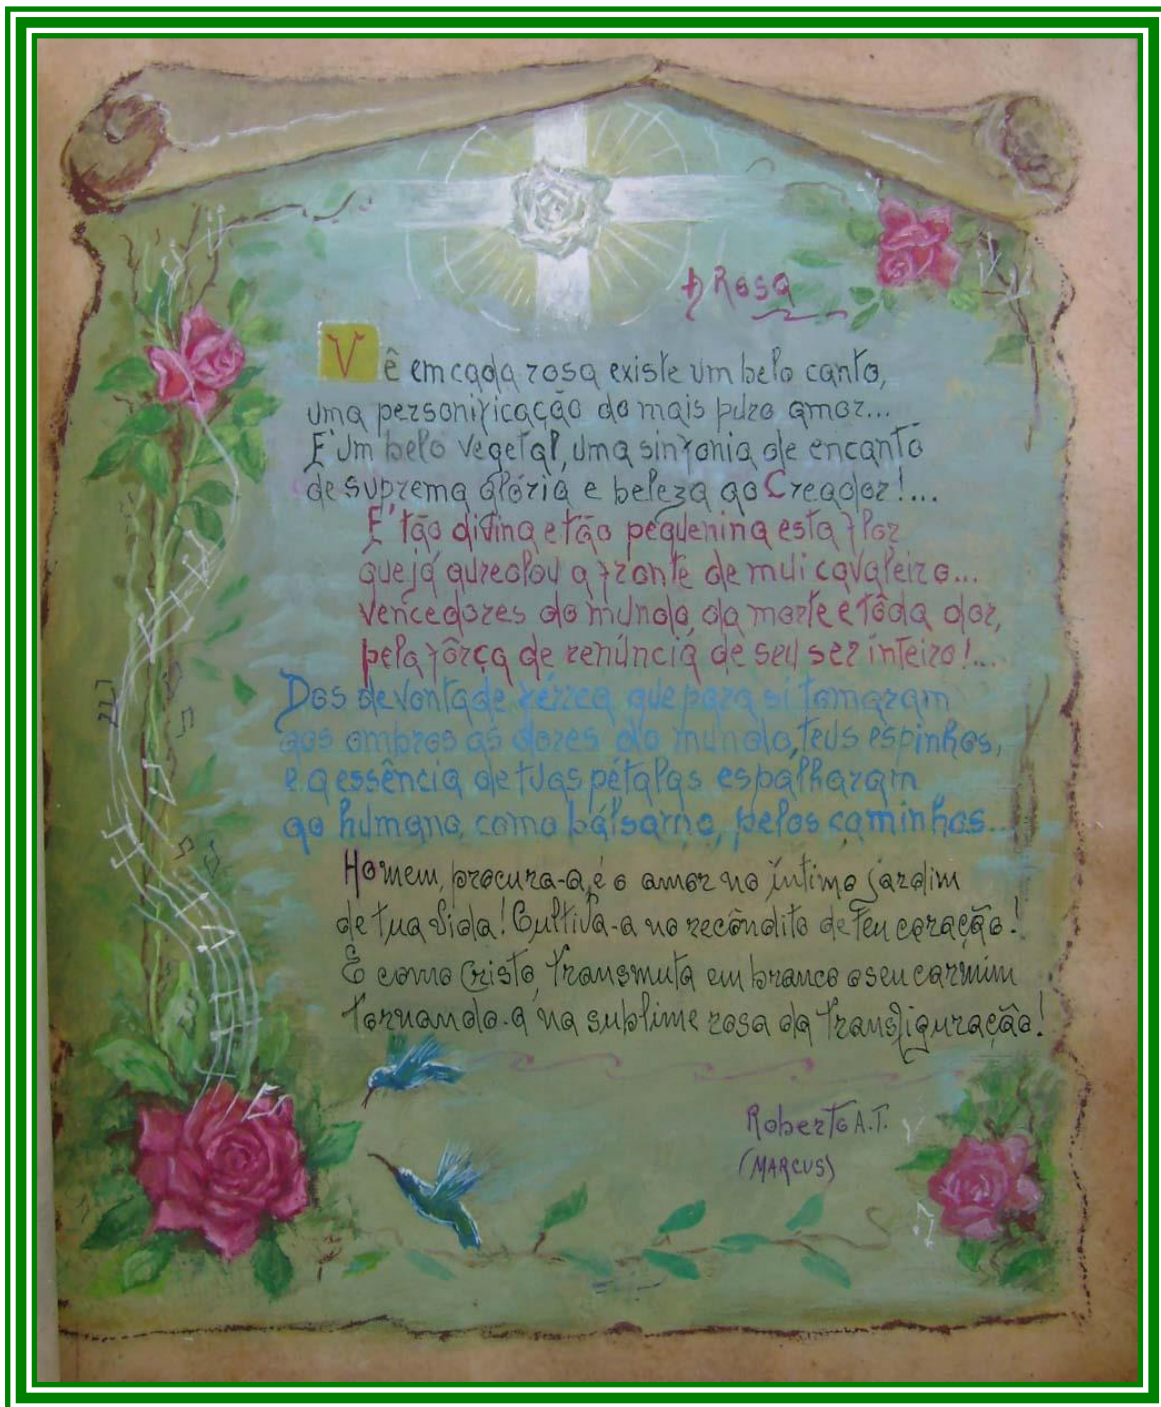 A Rosa
Vê em cada rosa existe um belo canto,
uma personificação do mais puro amor...
É um belo vegetal, uma sinfonia de encanto
de suprema glória e beleza ao Creador!...
É tão divina e tão pequenina esta flor
que já aureolou a fronte de mui cavaleiro...
vencedores do mundo, da morte e tôda dor,
pela fôrça de renúncia de seu ser inteiro!...
Dos de vontade férrea que para si tomaram
aos ombros as dores do mundo, teus espinhos,
e a essência de tuas pétalas espalharam
ao humano, como bálsamo, pelos caminhos...
Homem, procura-a, é o amor no íntimo jardim
de tua vida! Cultiva-a no recôndito de teu coração!
E como Cristo, transmuta em branco o seu carmim
tornando-a na sublime rosa da transfiguração!
Roberto A.T.
(MARCUS)